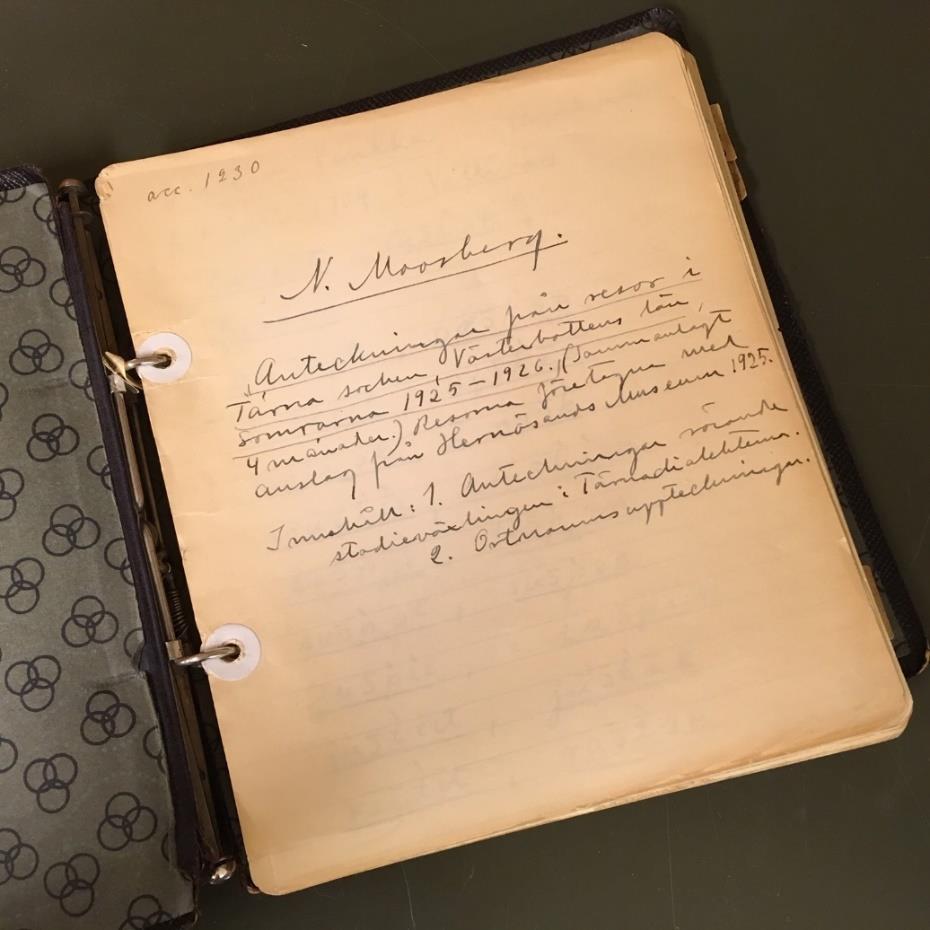 acc. 1230
N. Moosberg.
Anteckningar från resor i
Tärna socken, Västerbottens län,
somrarna 1925–1926. (Sammanlagt
4 månader.) Resorna företagna med
anslag från Hernösands Museum 1925.
Innehåll: 1. Anteckningar rörande
stadieväxlingen i Tärnadialekten.
2. Ortnamnsuppteckningar.